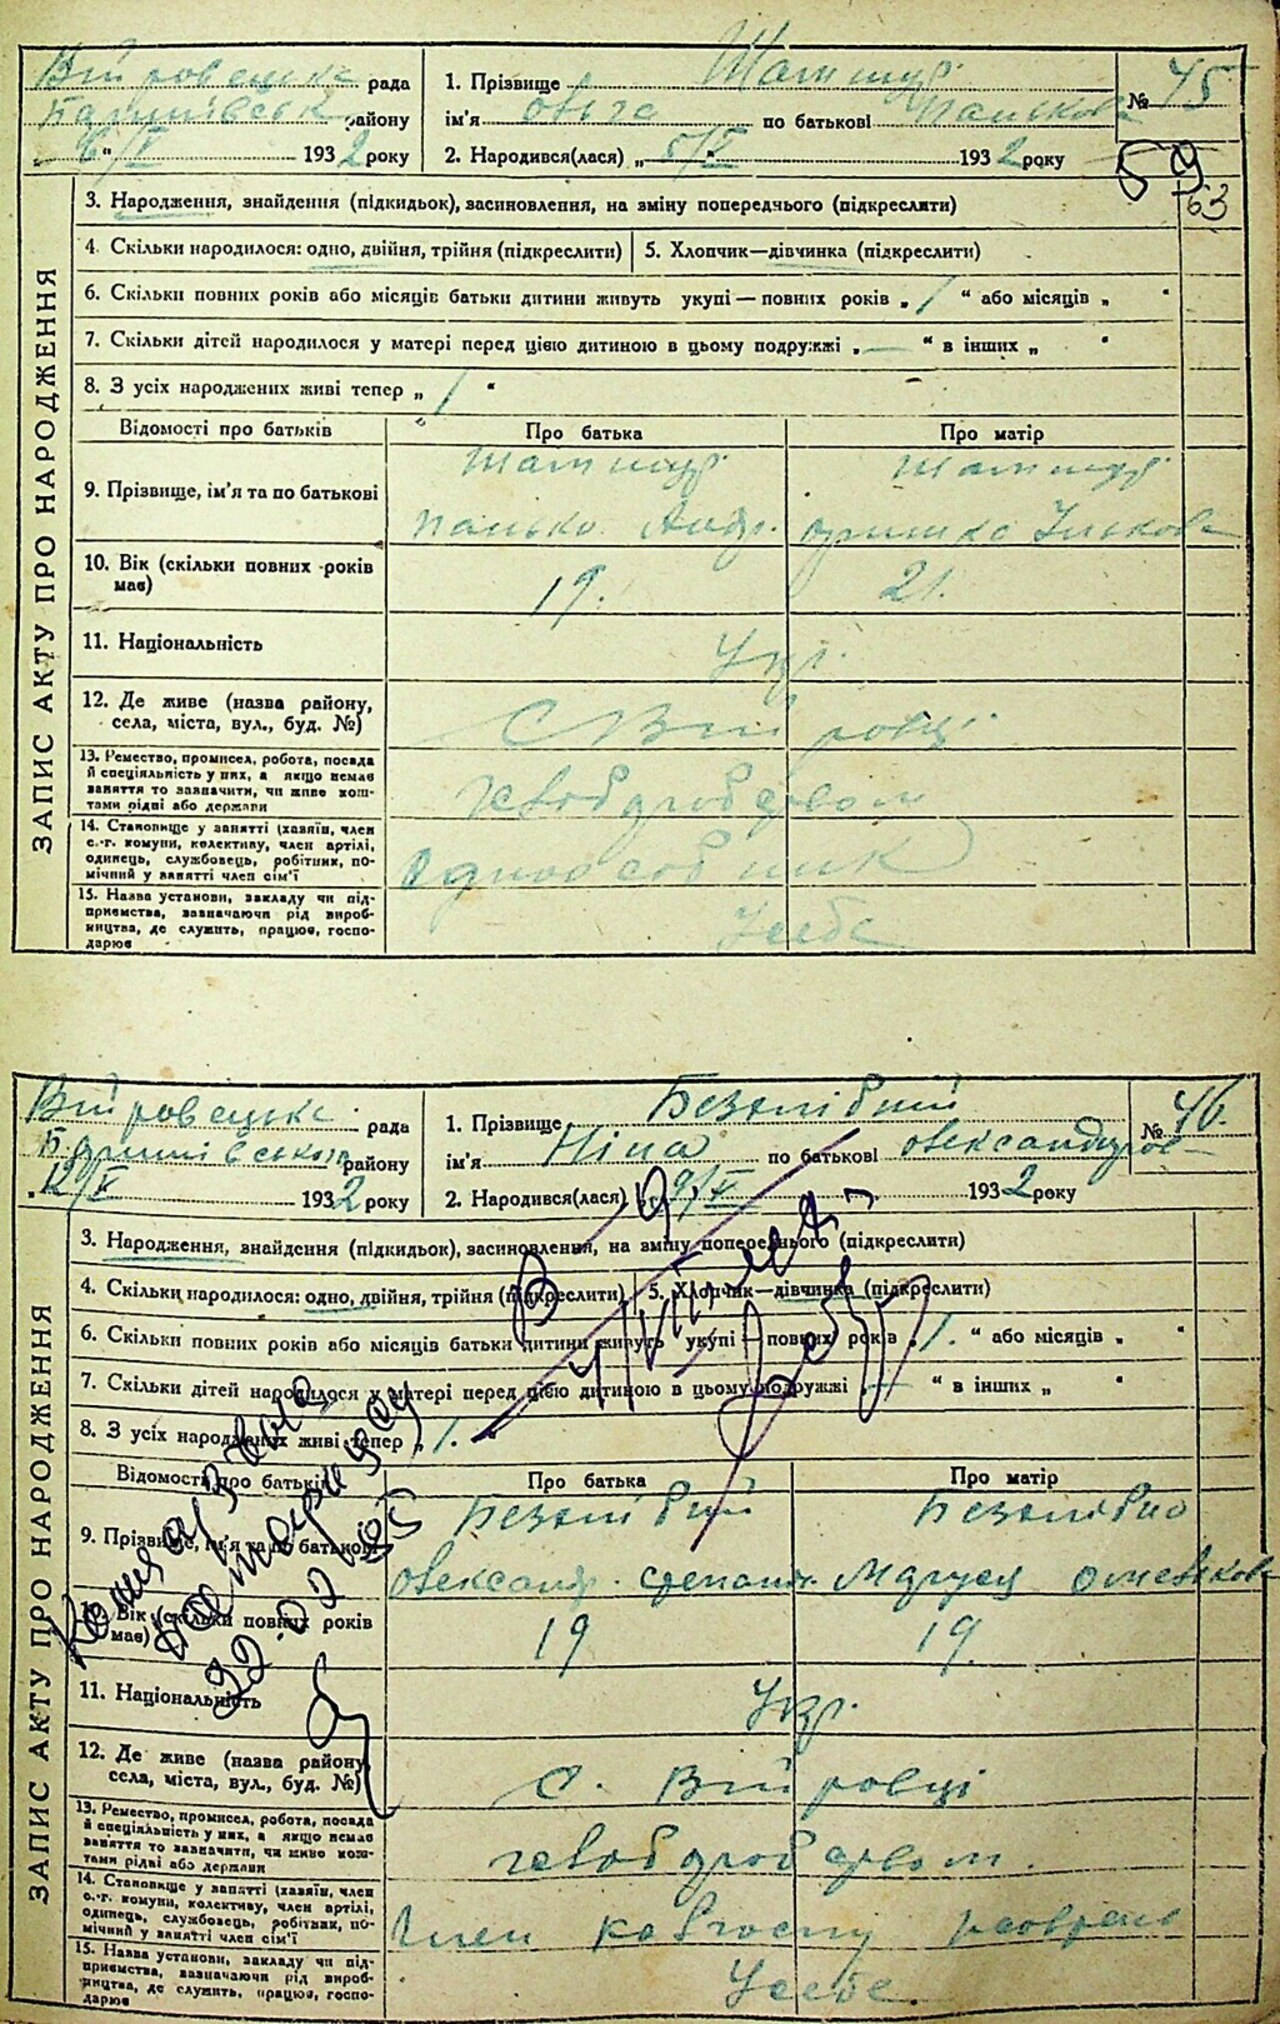 Війровецька рада
Баришівськ району
„ 6/V “ 1932 року
1. Прізвище Шатшур
ім'я Ольга по батькові Панькова
2. Народився(лася) „ 5/V “ 1932 року
№ 45
59
63
ЗАПИС АКТУ ПРО НАРОДЖЕННЯ
3. Народження, знайдення (підкидьок), засиновлення, на зміну попереднього (підкреслити)
4. Скільки народилося: одно, двійня, трійня (підкреслити)
5. Хлопчик—дівчинка (підкреслити)
6. Скільки повних років або місяців батьки дитини живуть укупі — повних років „ 1 “ або місяців „ “
7. Скільки дітей народилося у матері перед цією дитиною в цьому подружжі „ — “ в інших „ “
8. З усіх народжених живі тепер „ 1 “
Відомості про батьків
Про батька
Про матір
9. Прізвище, ім'я та по батькові
Шатшур
Панько Андр.
Шатшур
10. Вік (скільки повних років має)
19.
21.
11. Національність
Укр.
12. Де живе (назва району, села, міста, вул., буд. №)
С Війровці
13. Ремество, промисел, робота, посада
й спеціяльність у них, а якщо немає
заняття то зазначити, чи живе кош-
тами рідні або держави
хлібдробством
14. Становище у занятті (хазяїн, член
с.-г. комуни, колективу, член артілі,
одинець, службовець, робітник, по-
мічний у занятті член сім'ї
Одноособник
15. Назва установи, закладу чи під-
приємства, зазначаючи рід вироб-
ництва, де служить, працює, госпо-
дарює
У себе
Війровецька рада
Баришівського району
„ 12/V 1932 року
1. Прізвище Безплібний
ім'я Ніна по батькові Олександров
2. Народився(лася) „ 9/V 1932 року
№ 46.
ЗАПИС АКТУ ПРО НАРОДЖЕННЯ
3. Народження, знайдення (підкидьок), засиновлення, на зміну попереднього (підкреслити)
4. Скільки народилося: одно, двійня, трійня (підкреслити)
5. Хлопчик—дівчинка (підкреслити)
6. Скільки повних років або місяців батьки дитини живуть укупі — повних років „ 1. “ або місяців „ “
7. Скільки дітей народилося у матері перед цією дитиною в цьому подружжі „ — “ в інших „ “
8. З усіх народжених живі тепер „ 1. “
Відомості про батьків
Про батька
Про матір
9. Прізвище, ім'я та по батькові
Безплібний
Олександр. Степан.
Безплібно
Маруся
10. Вік (скільки повних років має)
19
19.
11. Національність
Укр.
12. Де живе (назва району, села, міста, вул., буд. №)
с. Війровці
13. Ремество, промисел, робота, посада
й спеціяльність у них, а якщо немає
заняття то зазначити, чи живе кош-
тами рідні або держави
хлібдробством.
14. Становище у занятті (хазяїн, член
с.-г. комуни, колективу, член артілі,
одинець, службовець, робітник, по-
мічний у занятті член сім'ї
Член колгоспу
15. Назва установи, закладу чи під-
приємства, зазначаючи рід вироб-
ництва, де служить, працює, госпо-
дарює
У себе.